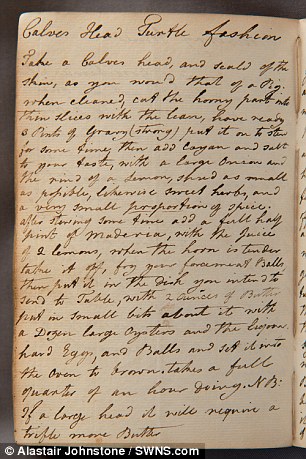 Calves Head Turtle fashion
Take a Calves head, and scald of the
skin, as you would that of a Pig:
when cleaned, cut the horny part into
thin slices with the lean, have ready
3 Pints of Gravy (strong) put it on to stew
for some time, then add Cayan and salt
to your taste, with a large Onion and
the rind of a Lemon, shred as small
as possible, likewise sweet herbs, and
a very small proportion of spice:
after stewing some time add a full half
pint of Maderia, with the Juice
of 2 lemons, when the horn is tender
take it off, fry your forcement Balls,
then put it in the dish you intend to
send to Table, with 2 Ounces of Butter
put in small bits about it with
a Dozen large Oysters and the
hard Eggs, and Balls and set it into
the Oven to brown. takes a full
quarter of an hour doing. NB:
If a large head it will require a
trifle more Butter
© Alastair Johnstone / SWNS.com